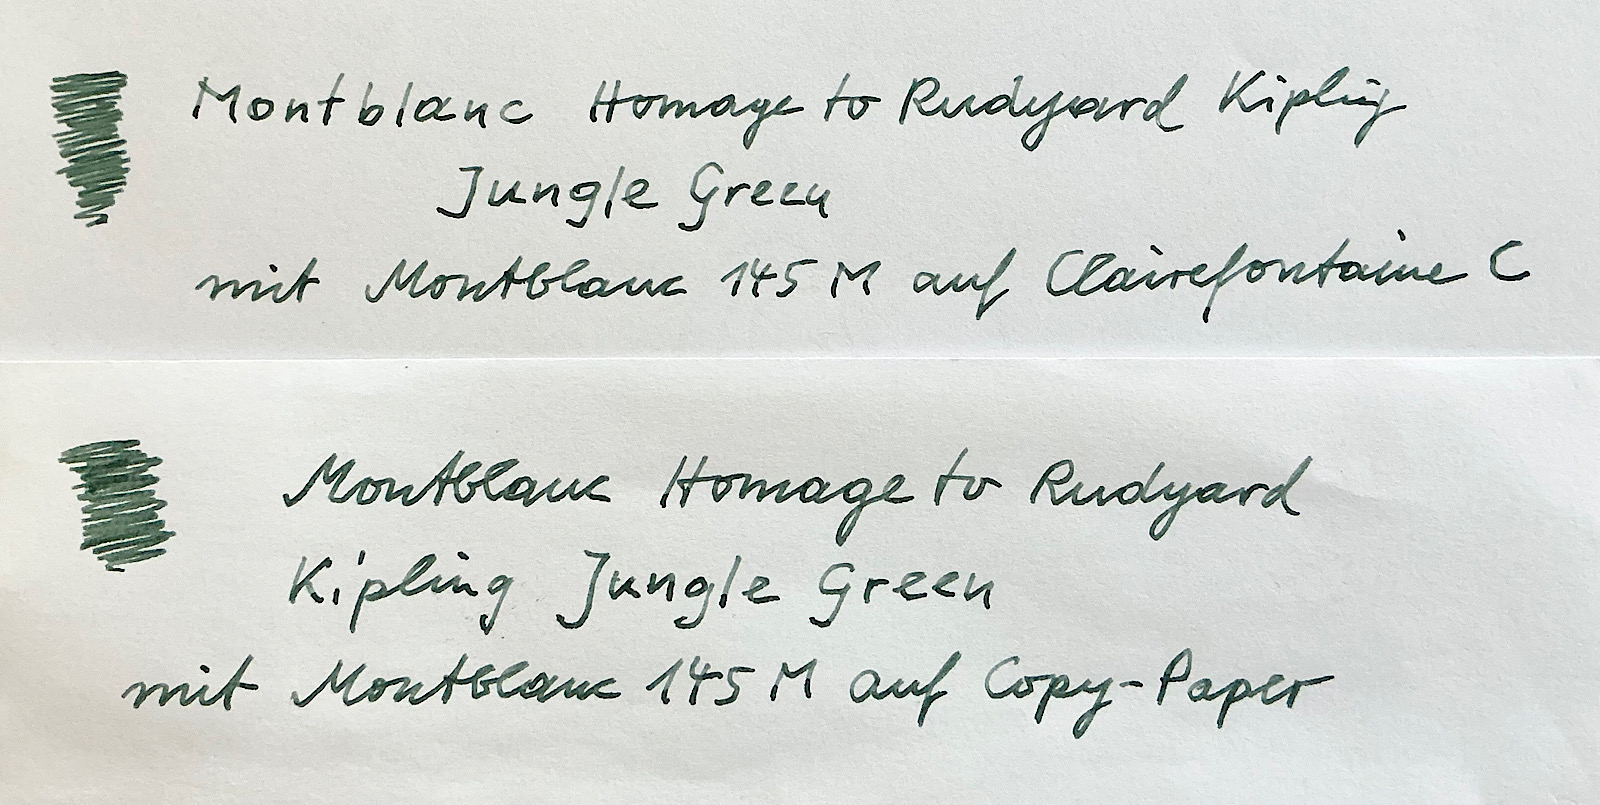 Montblanc Homage to Rudyard Kipling
Jungle Green
mit Montblanc 145 M auf Clairefontaine C
Montblanc Homage to Rudyard
Kipling Jungle Green
mit Montblanc 145 M auf Copy-Paper